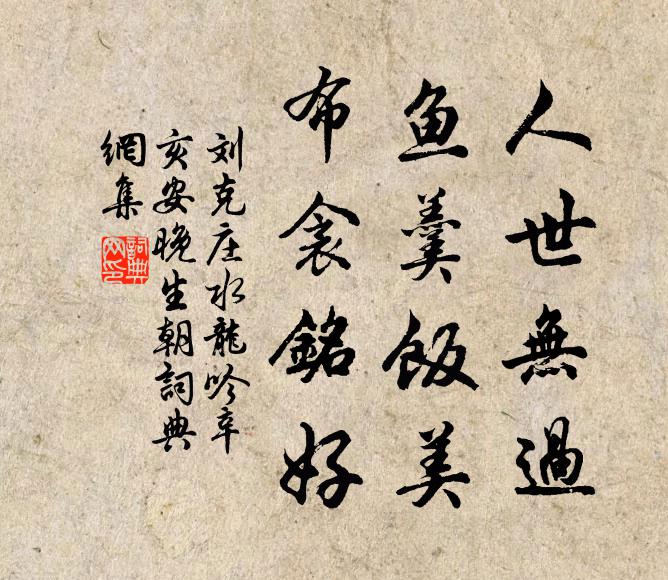 人世無過
鱼羹飯美
布衾銘好
刘克庄水龍吟辛
亥安晚生朝詞典
網集
詞典網印